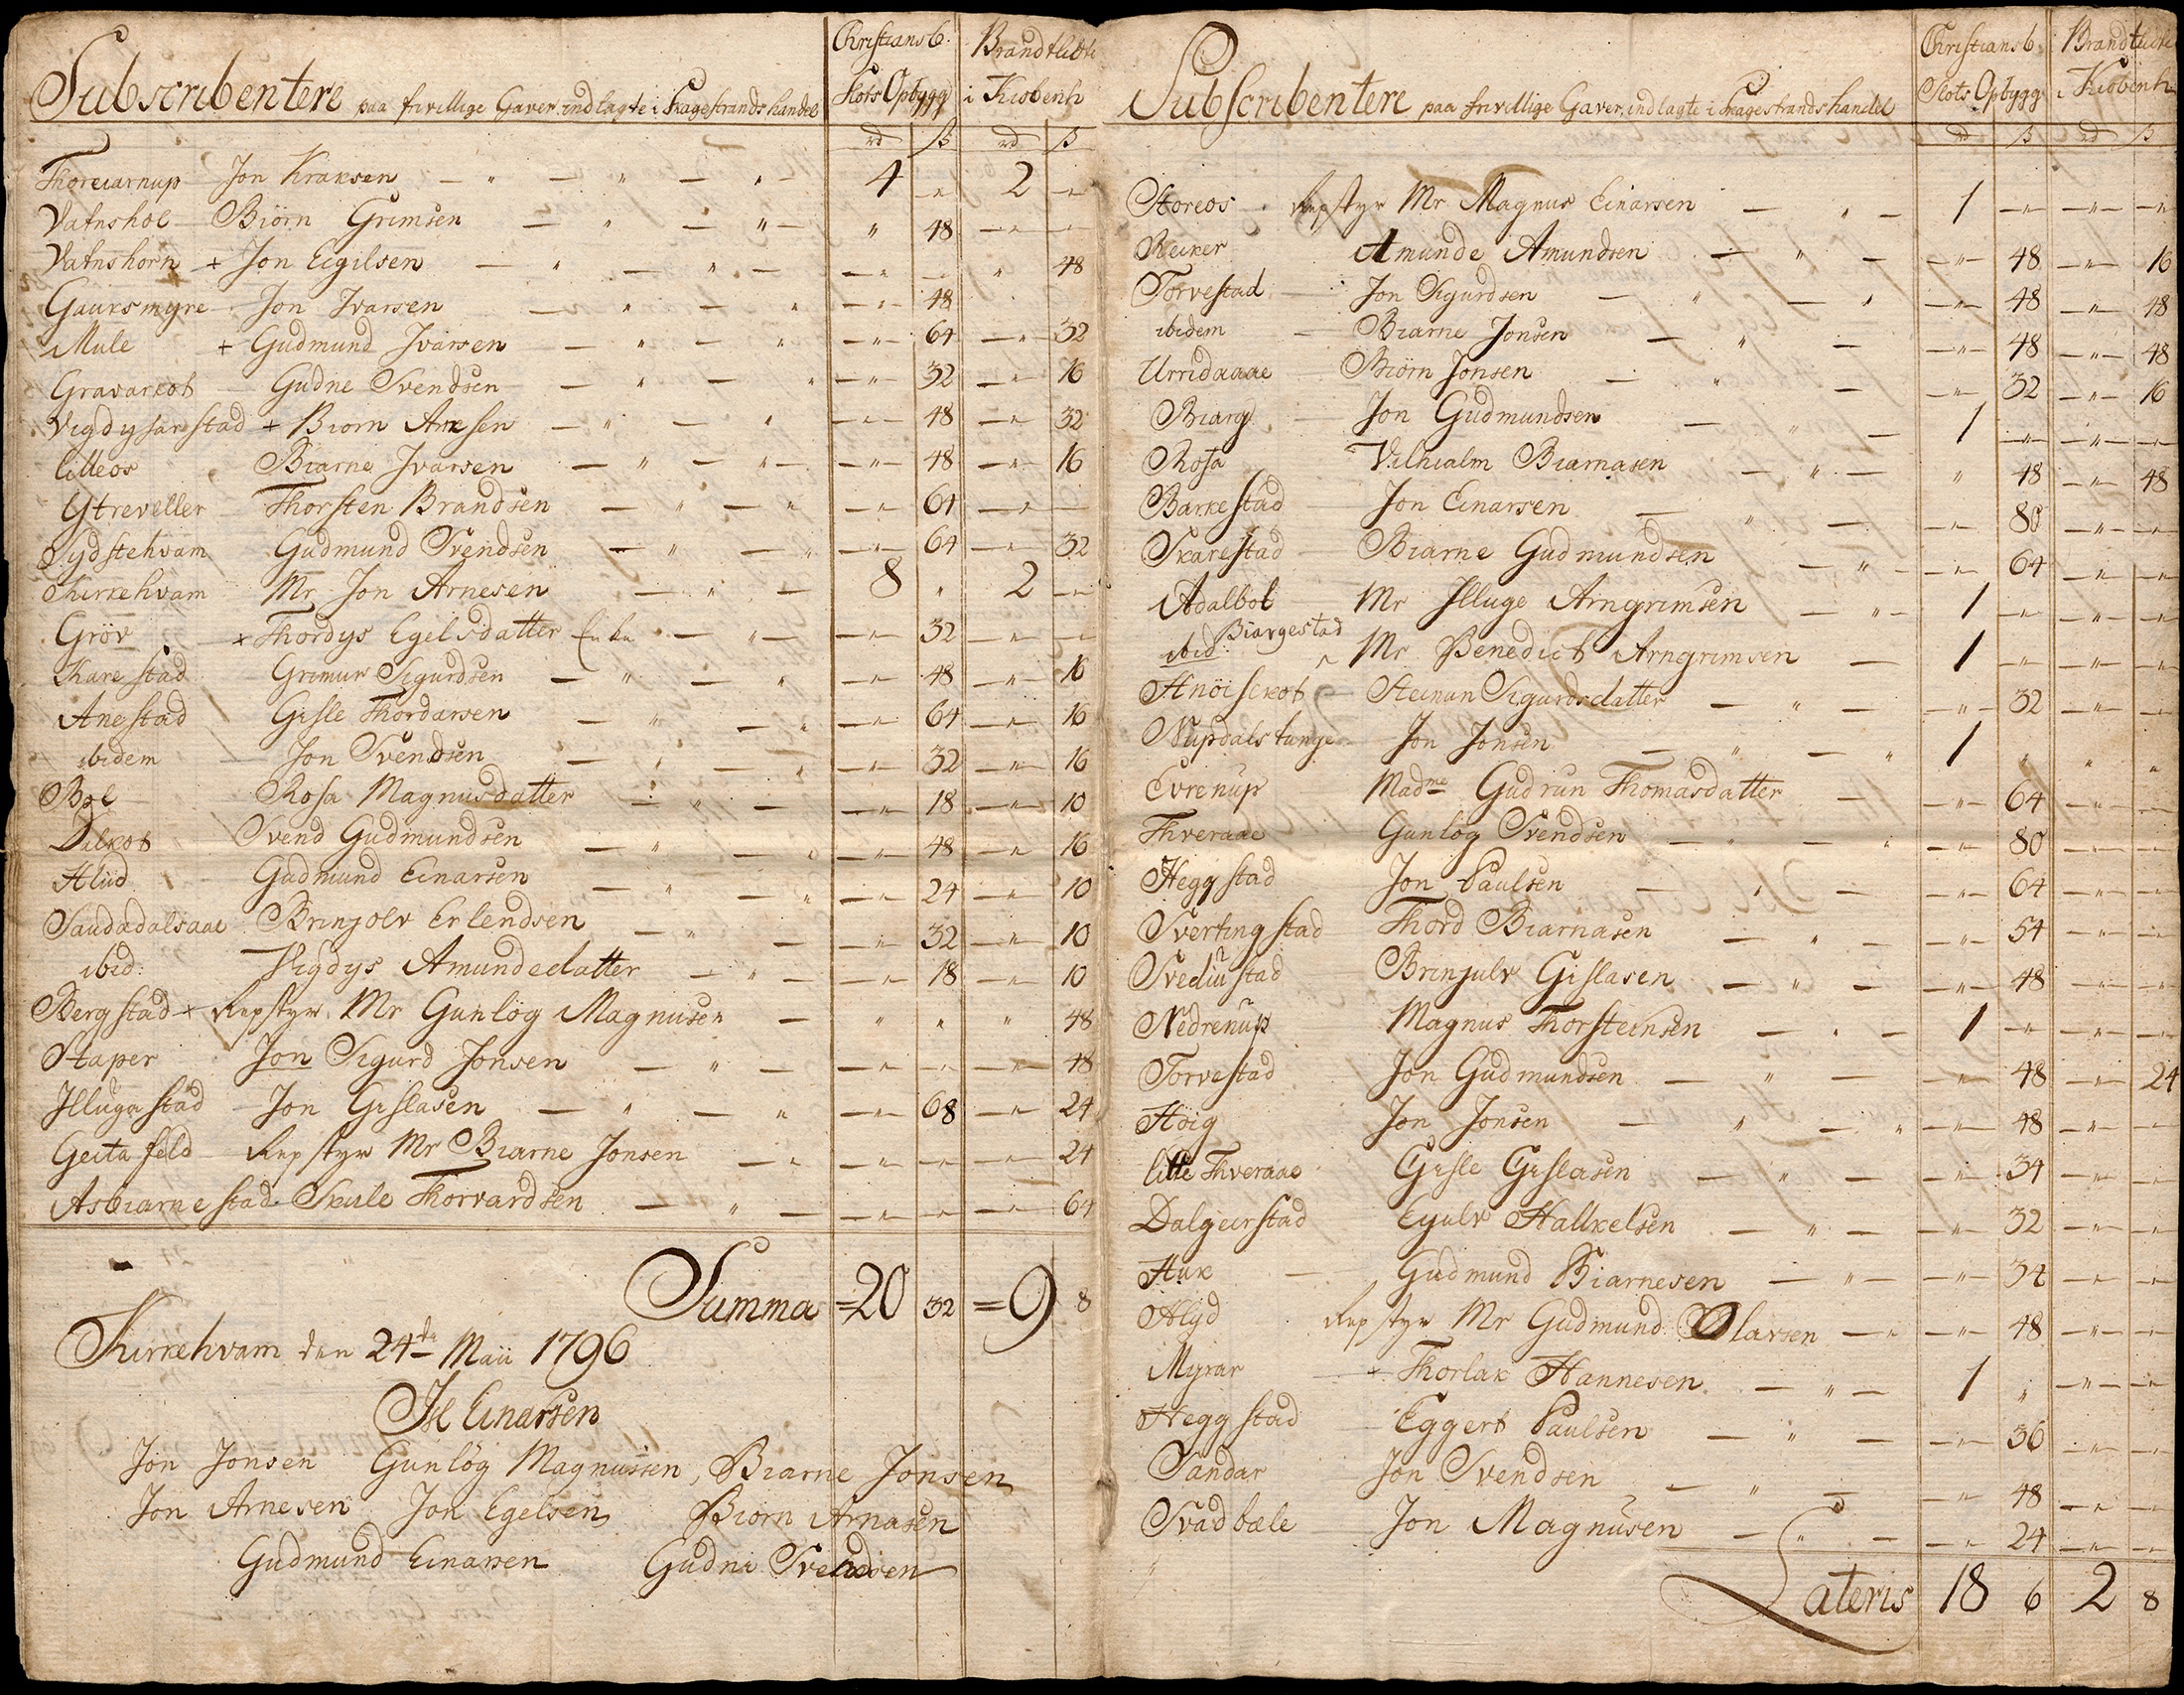 Christiansb. Brandtlidte
Subscribentere paa frivillige Gaver indlagte i Skagestrands handel Slots Opbygg i Kiobenh
rd ß rd ß
Thoreiarnup Jon Kraksen — " — " — " — 4 —"— 2 —"—
Vatnshol Biörn Grimsen — " — "— " 48 —"— —
Vatnshorn + Jon Eigilsen — " — " — —"— — " 48
Gauksmyre Jon Ivarsen — " — " —"— 48
Mule + Gudmund Ivarsen — " — " —"— 64 —"— 32
Gravarkot Gudne Svendsen — " — " —"— 32 —"— 16
Vigdysarstad + Biorn Arnesen — " — " —"— 48 —"— 32
lilleos Biarne Ivarsen — " — "— —"— 48 —"— 16
Ytreveller Thorsten Brandsen — " — " —"— 64 —"— —
Sydstehvam Gudmund Svendsen — " — " —"— 64 —"— 32
Kirkehvam Mr Jon Arnesen — " — 8 " 2 —"—
Gröv + Thordys Egelsdatter Enke — "— —"— 32 —"— —"—
Karestad Grimur Sigurdsen — " — " —"— 48 —"— 16
Anestad Gisle Thordarsen — " — " —"— 64 —"— 16
ibidem — Jon Svendsen — " — " —"— 32 —"— 16
Bøl Rosa Magnusdatter — " — —"— 18 —"— 10
Dilkot Svend Gudmundsen — " — " —"— 48 —"— 16
Hlid Gudmund Einarsen — " — " —"— 24 —"— 10
Saudadalsaae Brinjolv Erlendsen — " — —"— 32 —"— 10
ibid: Vigdys Amundedatter — " — —"— 18 —"— 10
Bergstad + Repstyr. Mr Gunlög Magnusen — " " " 48
Staper Jon Sigurd Jonsen — " — —"— —"— —"— 48
Illugastad Jon Gislasen — " — " —"— 68 —"— 24
Geitafeld Repstyr Mr Biarne Jonsen — " —"— —"— —"— 24
Asbiarnestad Skule Thorvardsen — " — —"— —"— —"— 64
Summa =20 32 =9 8
Kirkehvam den 24de Maii 1796
Isl Einarsen
Jon Jonsen Gunlög Magnussen, Biarne Jonsen
Jon Arnesen Jon Egelsen Biorn Arnasen
Gudmund Einarsen Gudni Svendsen
Christiansb. Brandtlidte
Subscribentere paa frivillige Gaver, indlagte i Skagestrandshandel Slots Opbygg i Kiobenh
rd ß rd ß
Storeos Repstyr Mr Magnus Einarsen — " — 1 —"— —"— —"—
Reiker Amunde Amundsen — " — —"— 48 —"— 16
Torvestad Jon Sigurdsen — " — " —"— 48 —"— 48
ibidem — Biarne Jonsen — " — —"— 48 —"— 48
Urridaaae Biörn Jonsen — " — —"— 32 —"— 16
Biarg Jon Gudmundsen — " — 1 —"— —"— —"—
Rosa Vilhialm Biarnasen — " — " 48 —"— 48
Barkestad Jon Einarsen — " — —"— 80 —"— —"—
Skarestad Biarne Gudmundsen — " — —"— 64 —"— —"—
Adalbol Mr Illuge Arngrimsen — "— 1 —"— —"— —"—
ibid: Biargestad Mr Benedict Arngrimsen — 1 —"— —"— —"—
Hnöiskot Steinun Sigurdsdatter — " — —"— 32 —"— —"—
Nupdalstunge Jon Jonsen — " — " 1 " " "
Evrenup Madme Gudrun Thomasdatter — —"— 64 —"— —"—
Thveraae Gunlög Svendsen — " — " —"— 80 —"— —"—
Heggstad Jon Paulsen — " — —"— 64 —"— —"—
Svertingstad Thord Biarnasen — " — —"— 54 —"— —"—
Svediustad Brinjulv Gislasen — " — —"— 48 —"— —"—
Nedrenup Magnus Thorsteinsen — " — 1 —"— —"— —"—
Torvestad Jon Gudmundsen — " — —"— 48 —"— 24
Höig Jon Jonsen — " — " —"— 48 —"— —"—
litle Thveraae Gisle Gislasen — " — —"— 34 —"— —"—
Dalgeirstad Eyulv Hallkelsen — " — —"— 32 —"— —"—
Huk — Gudmund Biarnesen — "— —"— 34 —"— —"—
Hlyd Repstyr Mr Gudmund Olavsen —"— —"— 48 —"— —"—
Myrar + Thorlak Hannesen — "— 1 " —"— —"—
Heggstad Eggert Paulsen — " — —"— 36 —"— —"—
Sandar Jon Svendsen — " — —"— 48 —"— —"—
Svadbæle Jon Magnusen — " — —"— 24 —"— —"—
Lateris 18 6 2 8